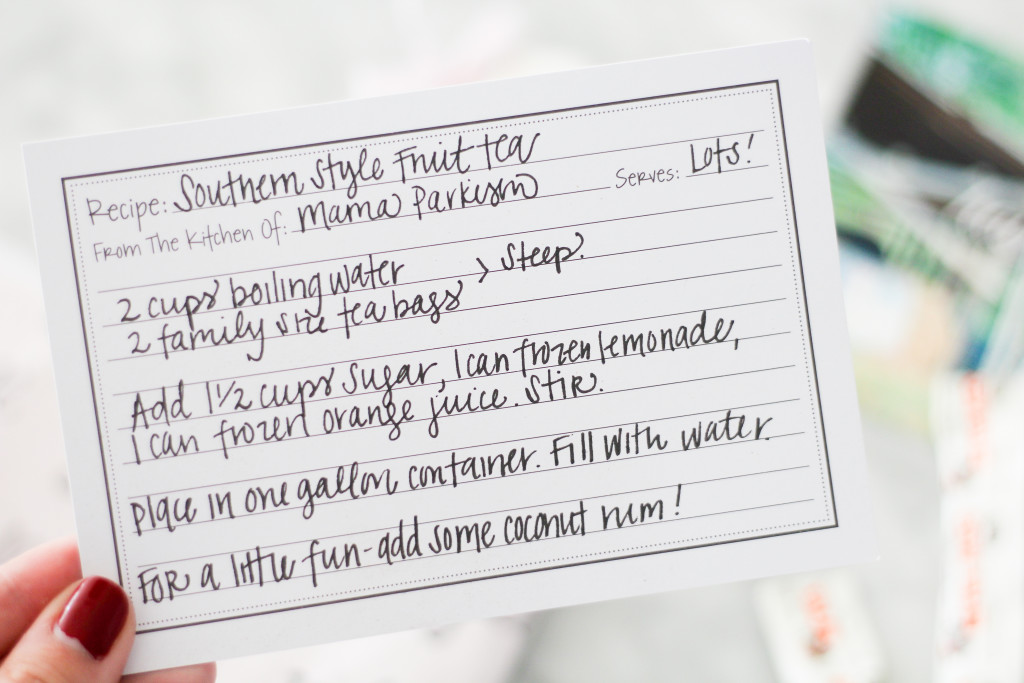 Recipe: Southern Style Fruit Tea
From The Kitchen Of: Mama Parkison Serves: Lots!
2 cups boiling water
2 family size tea bags > Steep.
Add 1 1/2 cups sugar, 1 can frozen lemonade,
1 can frozen orange juice. Stir.
Place in one gallon container. Fill with water.
For a little fun-add some coconut rum!